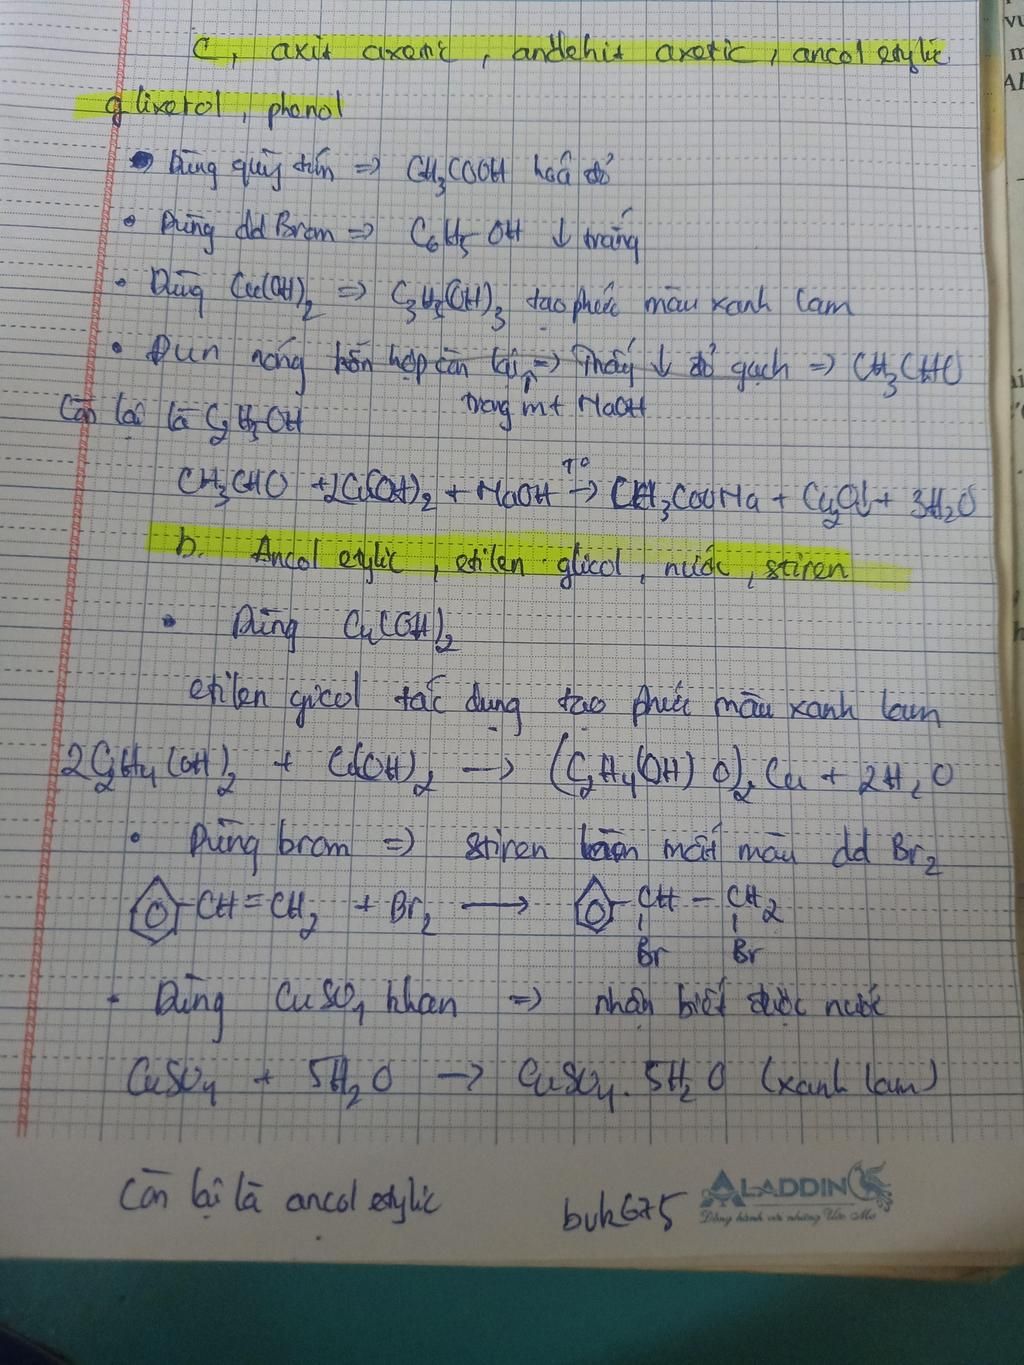 c, axit axetic, andehit axetic, ancol etylic
glixerol, phenol
Dùng quỳ tím => CH3COOH hoá đỏ
• Dùng dd Brom => C6H5OH ↓ trắng
• Dùng Cu(OH)2 => C3H5(OH)3 tạo phức màu xanh lam
• Đun nóng hỗn hợp còn lại => Thấy ↓ đỏ gạch => CH3CHO
trong mt NaOH
Còn lại là C2H5OH
CH3CHO + 2Cu(OH)2 + NaOH →(T°) CH3COONa + Cu2O↓ + 3H2O
b. Ancol etylic, etilen glicol, nước, stiren
• Dùng Cu(OH)2
etilen gicol tác dụng tạo phức màu xanh lam
2C2H4(OH)2 + Cu(OH)2 → (C2H4(OH)O)2Cu + 2H2O
• Dùng brom => stiren làm mất màu dd Br2
-CH=CH2 + Br2 → -CH-CH2
Br Br
- Dùng CuSO4 khan => nhận biết được nước
CuSO4 + 5H2O → CuSO4.5H2O (xanh lam)
Còn lại là ancol etylic
buk675
ALADDIN
Đồng hành với những Ước Mơ
VU
m
Al